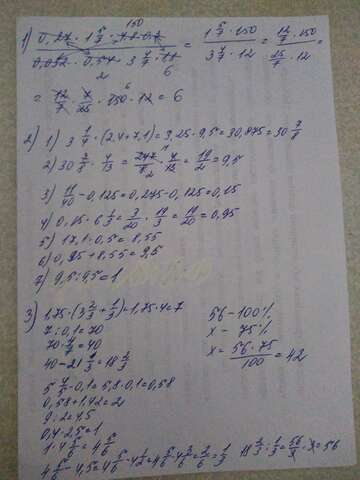 150
1) 0,27 · 1 5/7 · / 0,012 · 0,54 · 3 4/7 · = 1 5/7 · 150 / 3 4/7 · 12 = 12/7 · 150 / 25/7 · 12 =
2 6
= 12/7 · 7/25 · 150 · 12 = 6
2) 1) 3 1/4 · (2,4+7,1) = 3,25 · 9,5 = 30,875 = 30 7/8
2) 30 · 4/13 = 247/8 · 4/13 = 19/2 = 9,5
3) 11/40 - 0,125 = 0,275 - 0,125 = 0,15
4) 0,15 · 6 1/3 = 3/20 · 19/3 = 19/20 = 0,95
5) 17,1 · 0,5 = 8,55
6) 0,95 + 8,55 = 9,5
7) 9,5 : 9,5 = 1
3) 1,75 · (3 2/3 + 1/3) = 1,75 · 4 = 7
7 : 0,1 = 70
70 · 4/7 = 40
40 - 21 1/3 = 18 2/3
5 4/5 · 0,1 = 5,8 · 0,1 = 0,58
0,58 + 1,42 = 2
9 : 2 = 4,5
0,4 · 2,5 = 1
1 · 4 5/6 = 4 5/6
4 5/6 - 4,5 = 4 5/6 - 4 1/2 = 4 5/6 - 4 3/6 = 2/6 = 1/3
56 - 100%
x - 75%
x = 56 · 75 / 100 = 42
18 2/3 : 1/3 = 56/3 · 3 = 56